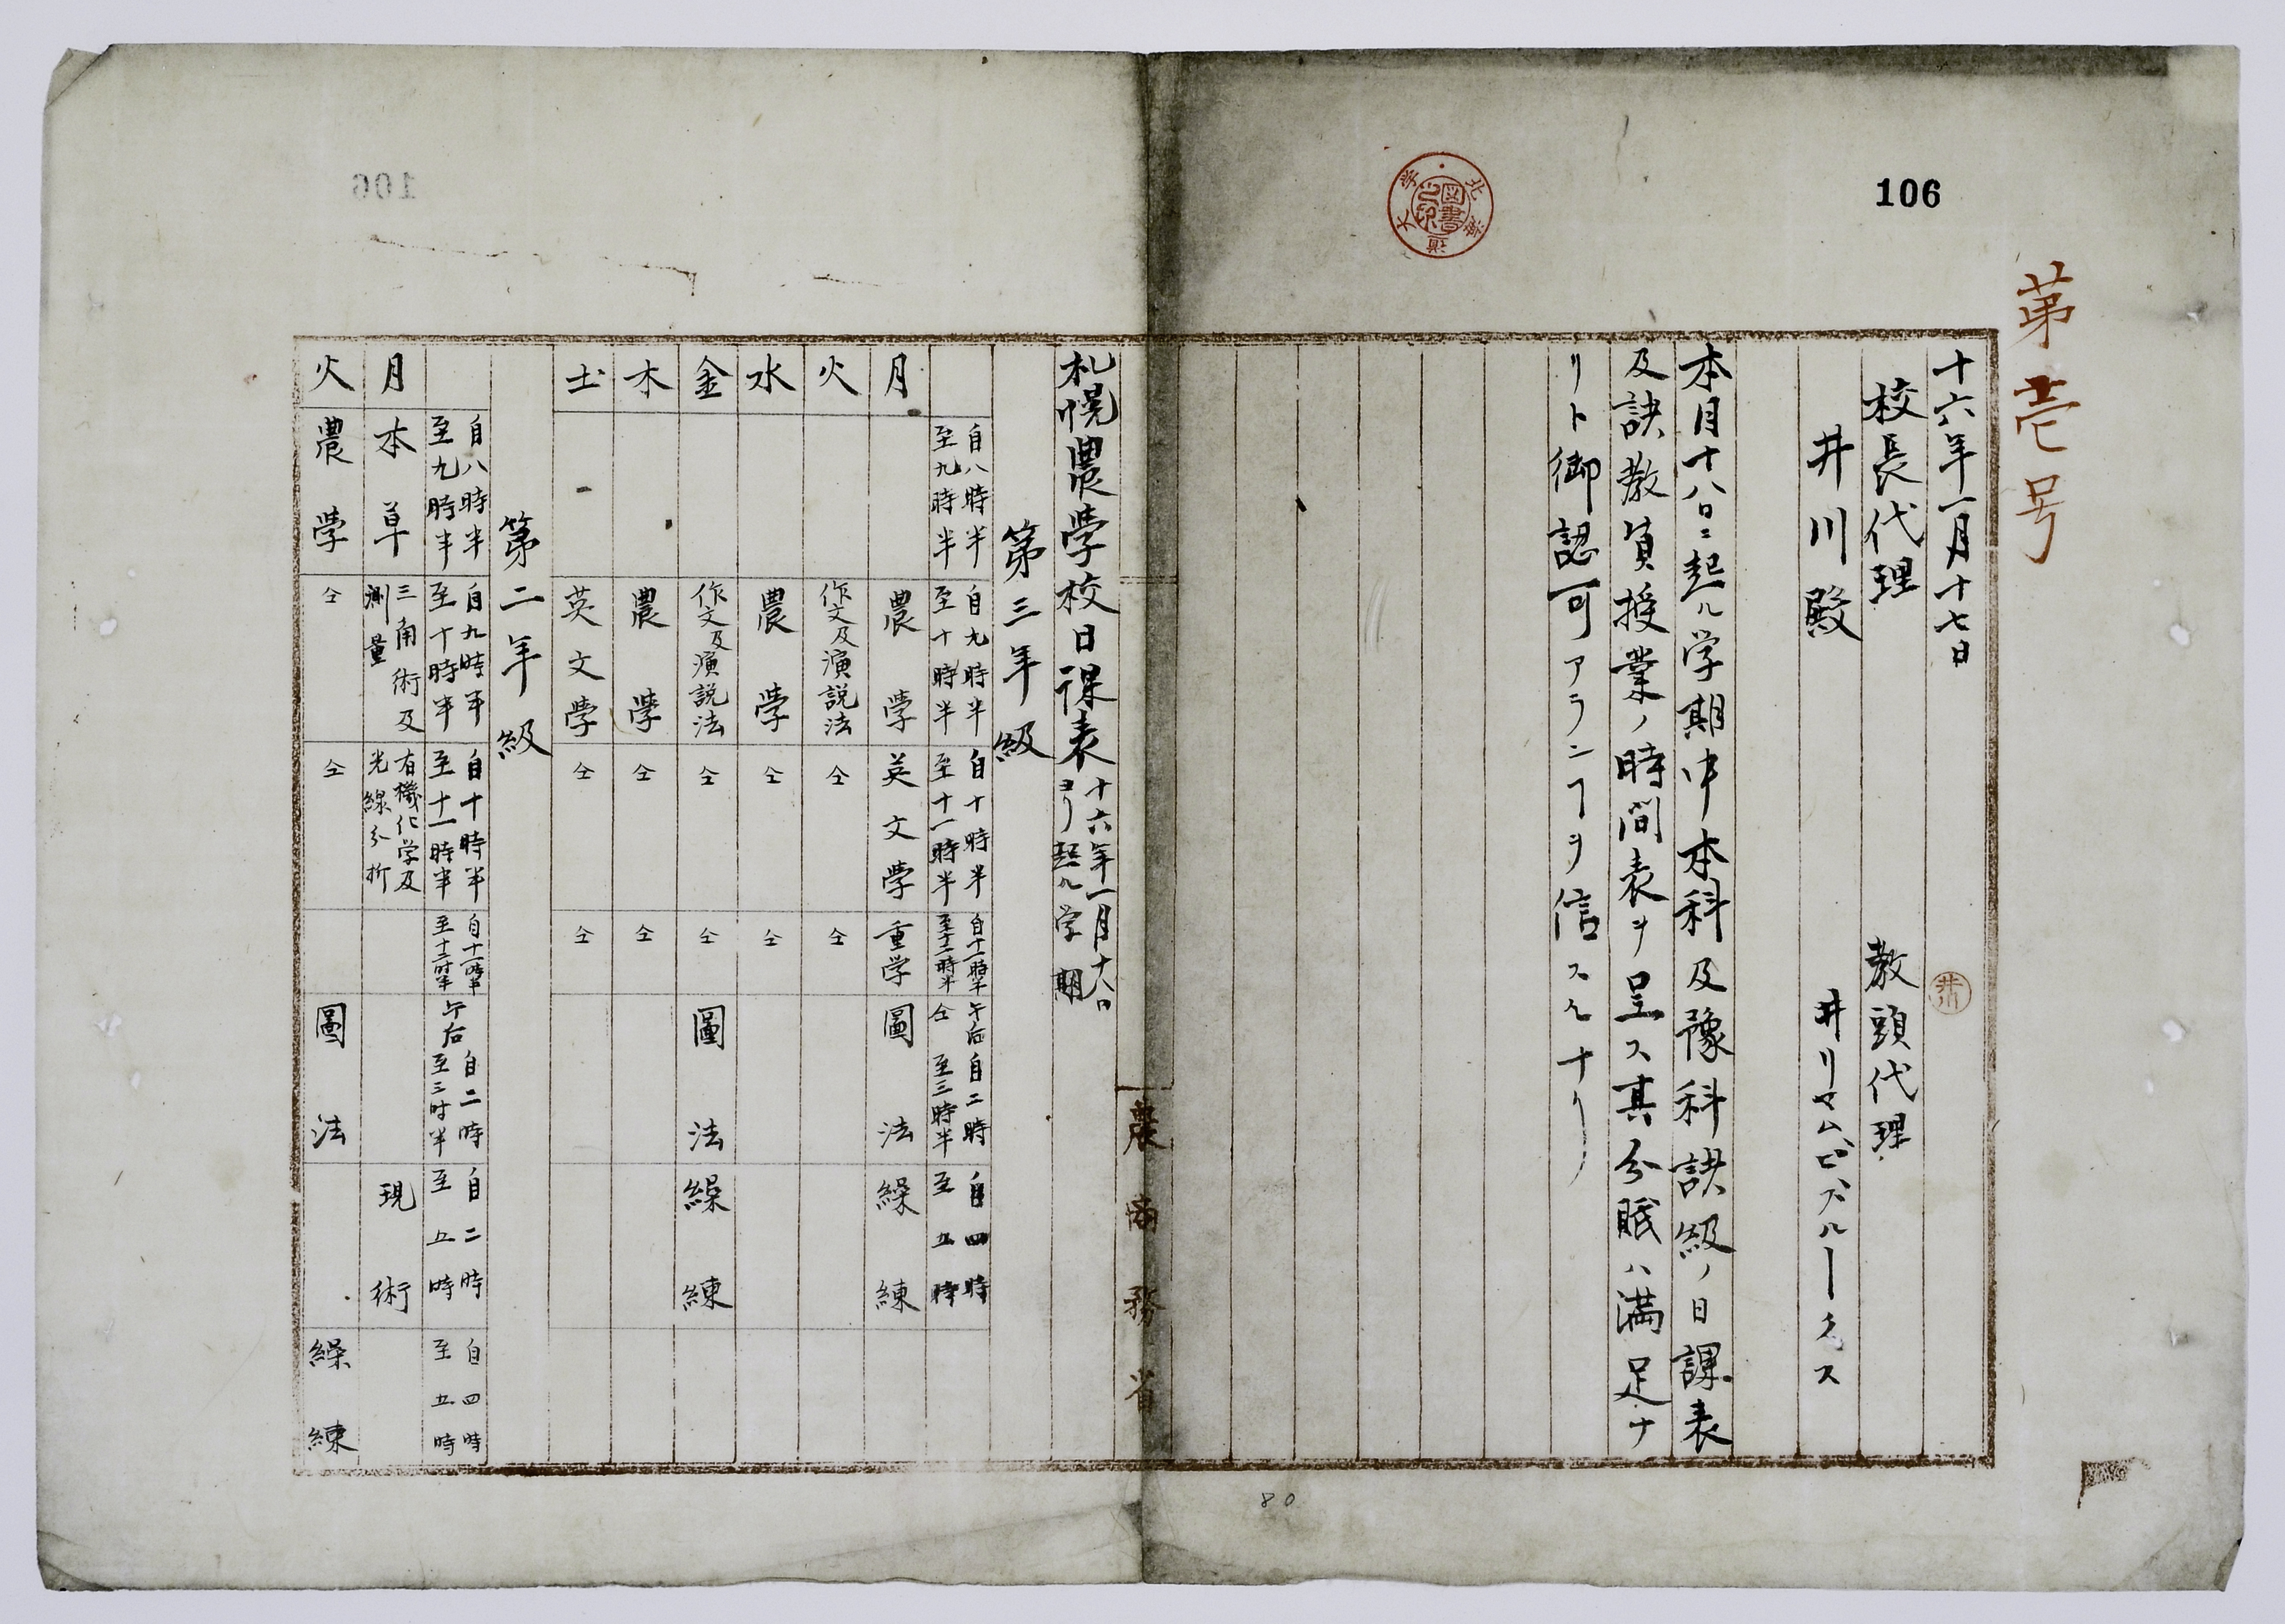 106
第壱号
十六年一月十七日
校長代理
井川殿
教頭代理
井川
井リヤムピブルークス
本月十八日ニ起ル学期中本科及豫科諸級ノ日課表
及諸教員授業ノ時間表ヲ呈ス其分賦ハ満足ナ
リト御認可アランヿヲ信スルナリ
農商務省
札幌農學校日課表 十六年一月十八日
ヨリ起ル学期
第三年級
自八時半 至九時半 自九時半 至十時半 自十時半 至十一時半 自十一時半 至十二時半 午后自二時 仝至三時半 自四時 至五時
月 農學 英文學 重学 圖法 繰練
火 作文及演説法 仝 仝
水 農學 仝 仝
金 作文及演説法 仝 仝 圖法 繰練
木 農學 仝 仝
土 英文學 仝 仝
第二年級
自八時半 至九時半 自九時半 至十時半 自十時半 至十一時半 自十一時半 至十二時半 午后 自二時 至三时半 自二時 至五時 自四時 至五時
月 本草 三角術及測量 有機化学及光線分析 現術
火 農學 仝 仝 圖法 繰練
80